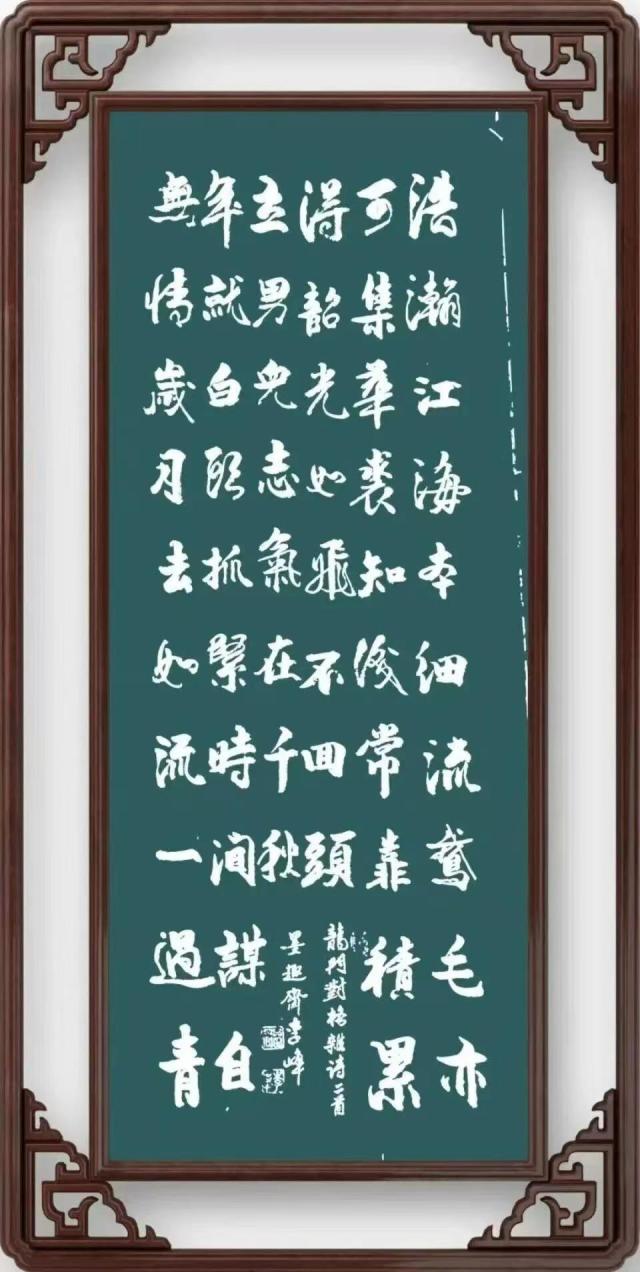 浩瀚江海本細流鵞毛亦
可集華裘知淺常靠積累
得韶光如飛不回頭
龍門對格雜詩二首
無情歲月去如流一過青
年就白頭抓緊時間謀自
立男兒志氣在千秋
墨趣齋李峰